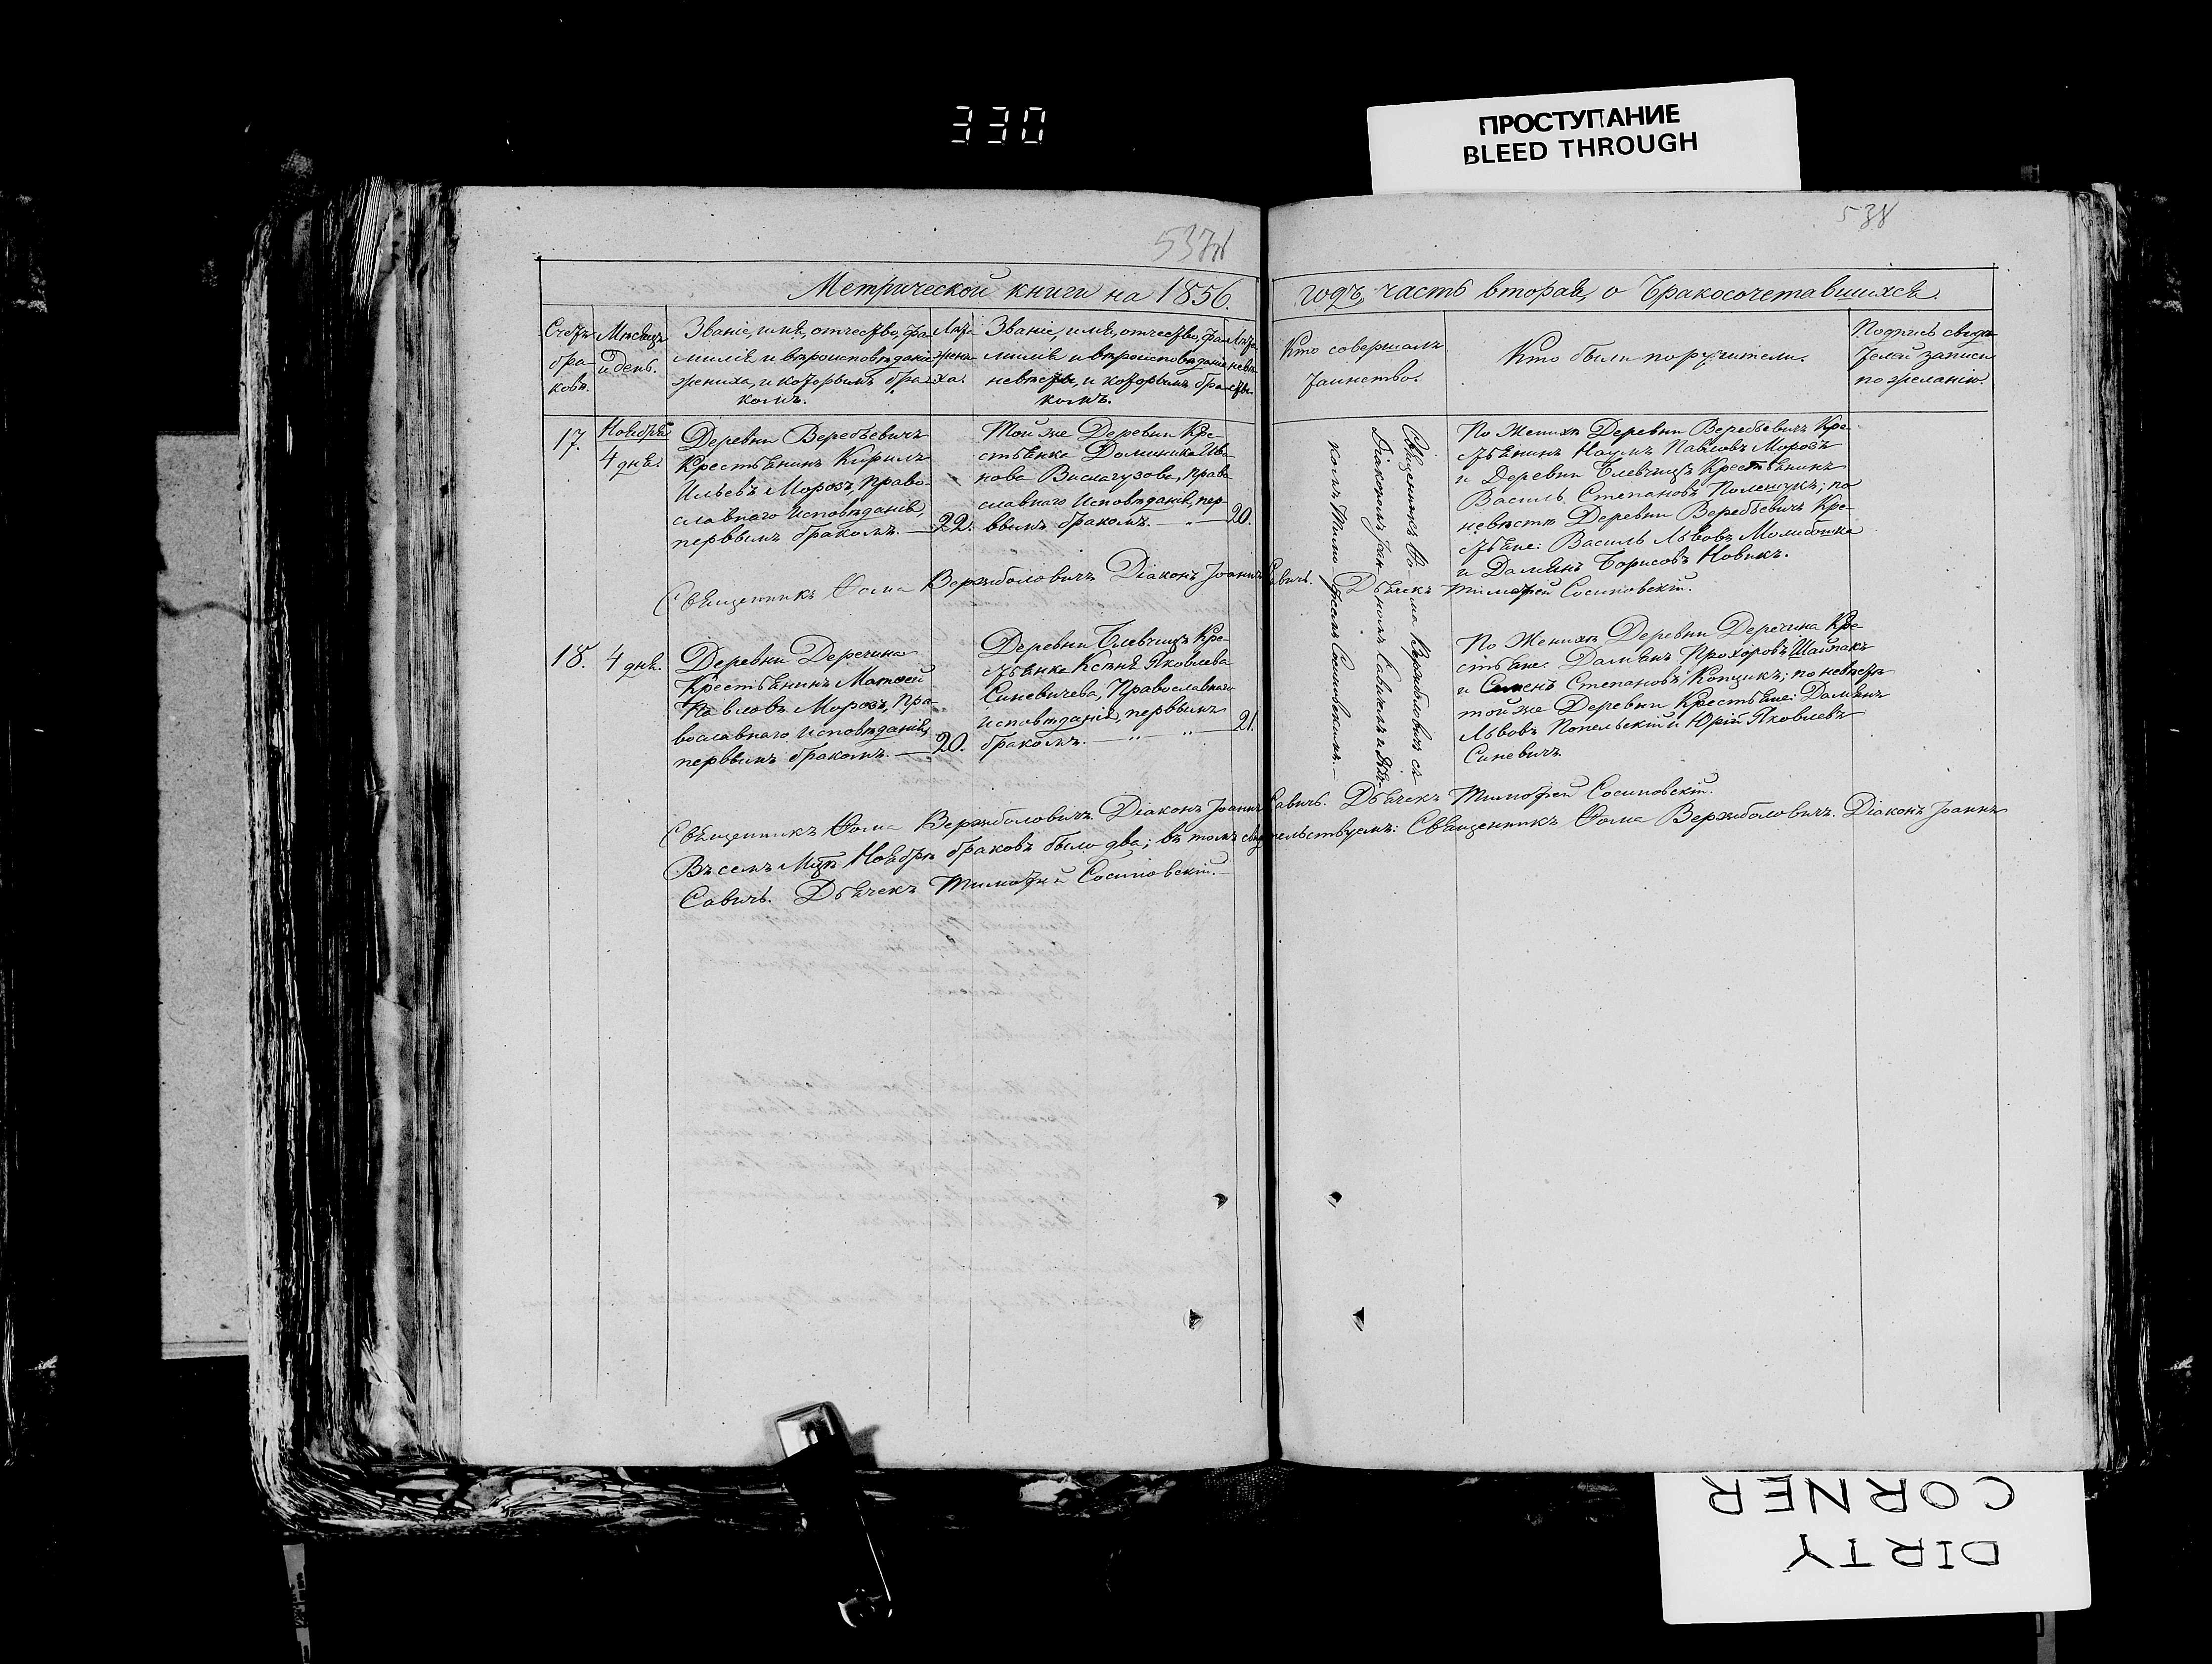 330
ПРОСТУПАНИЕ
BLEED THROUGH
538
Метрической книги на 1856.
годъ, часть вторая, о бракосочетавшихся.
Счетъ
бра
ковъ.
Мѣсяцъ
и день.
Званіе, имя, отчество, фа
милія и вѣроисповѣданіе
жениха, и которымъ бра
комъ.
Лѣта
жени
ха.
Званіе, имя, отчество, фа
милія и вѣроисповѣданіе
невѣсты, и которымъ бра
комъ.
Лѣта
невѣ
сты
Кто совершалъ
таинство.
Кто были поручители.
Подпись свидѣ
телей записи
по желанію.
17.
Ноября
4 дня.
Деревни Веребьевичъ
Крестьянинъ Кирилъ
Ильевъ Морозъ, Право-
славнаго Исповѣданія,
первымъ бракомъ.
22.
Той же Деревни Кре-
стьянка Доминика Ива
нова, Право
славнаго Исповѣданія, пер-
ввымъ бракомъ.
20.
Священникъ Ѳо
ма Вержболовичъ съ
Діакономъ Іоан
номъ Савичемъ и Дья
комъ Тимо
феемъ Сосиновскимъ.
По Женихѣ Деревни Веребьевичъ Кре-
стьянинъ Наумъ Павловъ Морозъ
и Деревни Крестьянинъ
Василь Степановъ Полещукъ; по
невѣстѣ Деревни Веребьевичъ Кре-
стьяне: Василь Львовъ
и Даміянъ Борисовъ Новикъ.
Священникъ Ѳома Вержболовичъ Діаконъ Іоаннъ Савичъ. Дьячекъ Тимофей Сосиновскій.
18.
4 дня.
Деревни Деречина
Крестьянинъ Матвей
Павловъ Морозъ, Пра-
вославнаго Исповѣданія,
перввымъ бракомъ.
20.
Деревни Кре-
стьянка Ксеня Яковлева
Синевичева, Православнаго
исповѣданія, перввымъ
бракомъ.
21.
По Женихѣ Деревни Деречина Кре-
стьяне: Даміянъ Прохоровъ Шайпакъ
и Семенъ Степановъ Котикъ; по невѣстѣ
той же Деревни Крестьяне: Даміянъ
Львовъ Попельскій и Юрій Яковлевъ
Синевичъ.
Священникъ Ѳома Вержболовичъ Діаконъ Іоаннъ Савичъ. Дьячекъ Тимофей Сосиновскій.
Въ семъ Мцѣ Ноябрѣ браковъ было два; въ томъ свидетельствуемъ: Священникъ Ѳома Вержболовичъ. Діаконъ Іоаннъ
Савичъ. Дьячекъ Тимофей Сосиновскій.
DIRTY
CORNER